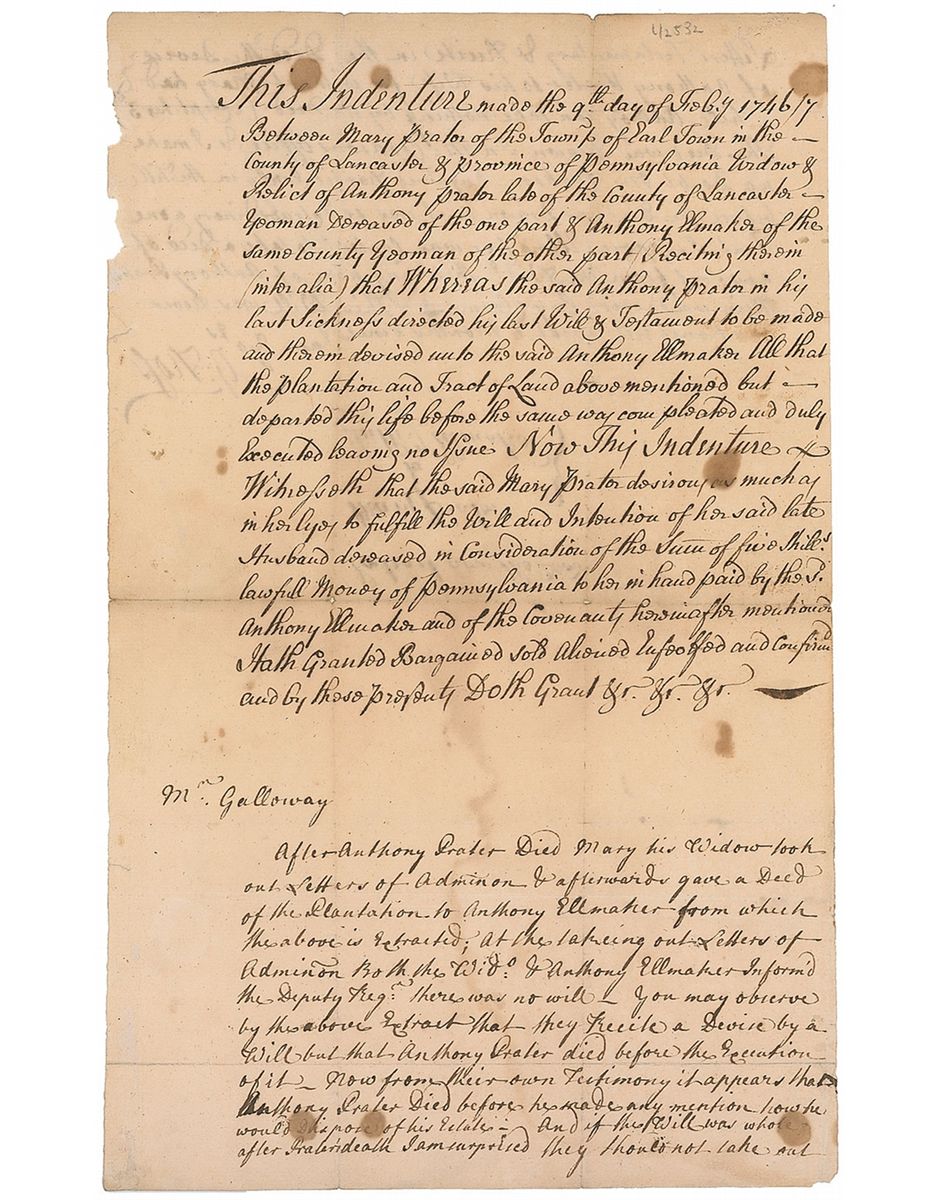 L/2532
This Indenture made the 9th day of Feb.y 1746/7
Between Mary Prator of the Town.p of Earl Town in the —
County of Lancaster & province of Pennsylvania Widow &
Relict of Anthony Prator late of the County of Lancaster —
Yeoman Deceased of the one part & Anthony Ellmaker of the
same County Yeoman of the other part (Reciting therein
(inter alia) that Whereas the said Anthony Prator in his
last Sickness directed his last Will & Testament to be made
and therein devised unto the said Anthony Ellmaker All that
the plantation and Tract of Land above mentioned but —
departed this life before the same was compleated and duly
Executed leaving no Issue Now This Indenture
Witnesseth that the said Mary Prator desirous as much as
in her lyes to fulfill the Will and Intention of her said late
Husband deceased in Consideration of the Sum of five Shill.s
lawfull Money of Pennsylvania to her in hand paid by the s.d
Anthony Ellmaker and of the Covenants hereinafter mentioned
Hath Granted Bargained sold Aliened Enfeoffed and Confirm.d
and by these presents Doth Grant &c. &c. &c.
M.r Galloway
After Anthony Prater Died Mary his Widow took
out Letters of Adminon & afterwards gave a Deed
of the Plantation to Anthony Ellmaker from which
the above is Extracted; At the takeing out Letters of
Adminon Both the Wid.o & Anthony Ellmaker Inform'd
the Deputy Reg.r there was no will — You may observe
by the above Extract that they Recite a Devise by a
Will but that Anthony Prater died before the Execution
of it — Now from their own Testimony it appears that
Anthony Prater Died before he made any mention how he
would Dispose of his Estate — And if the Will was
after Praters death I am surprised they should not take out